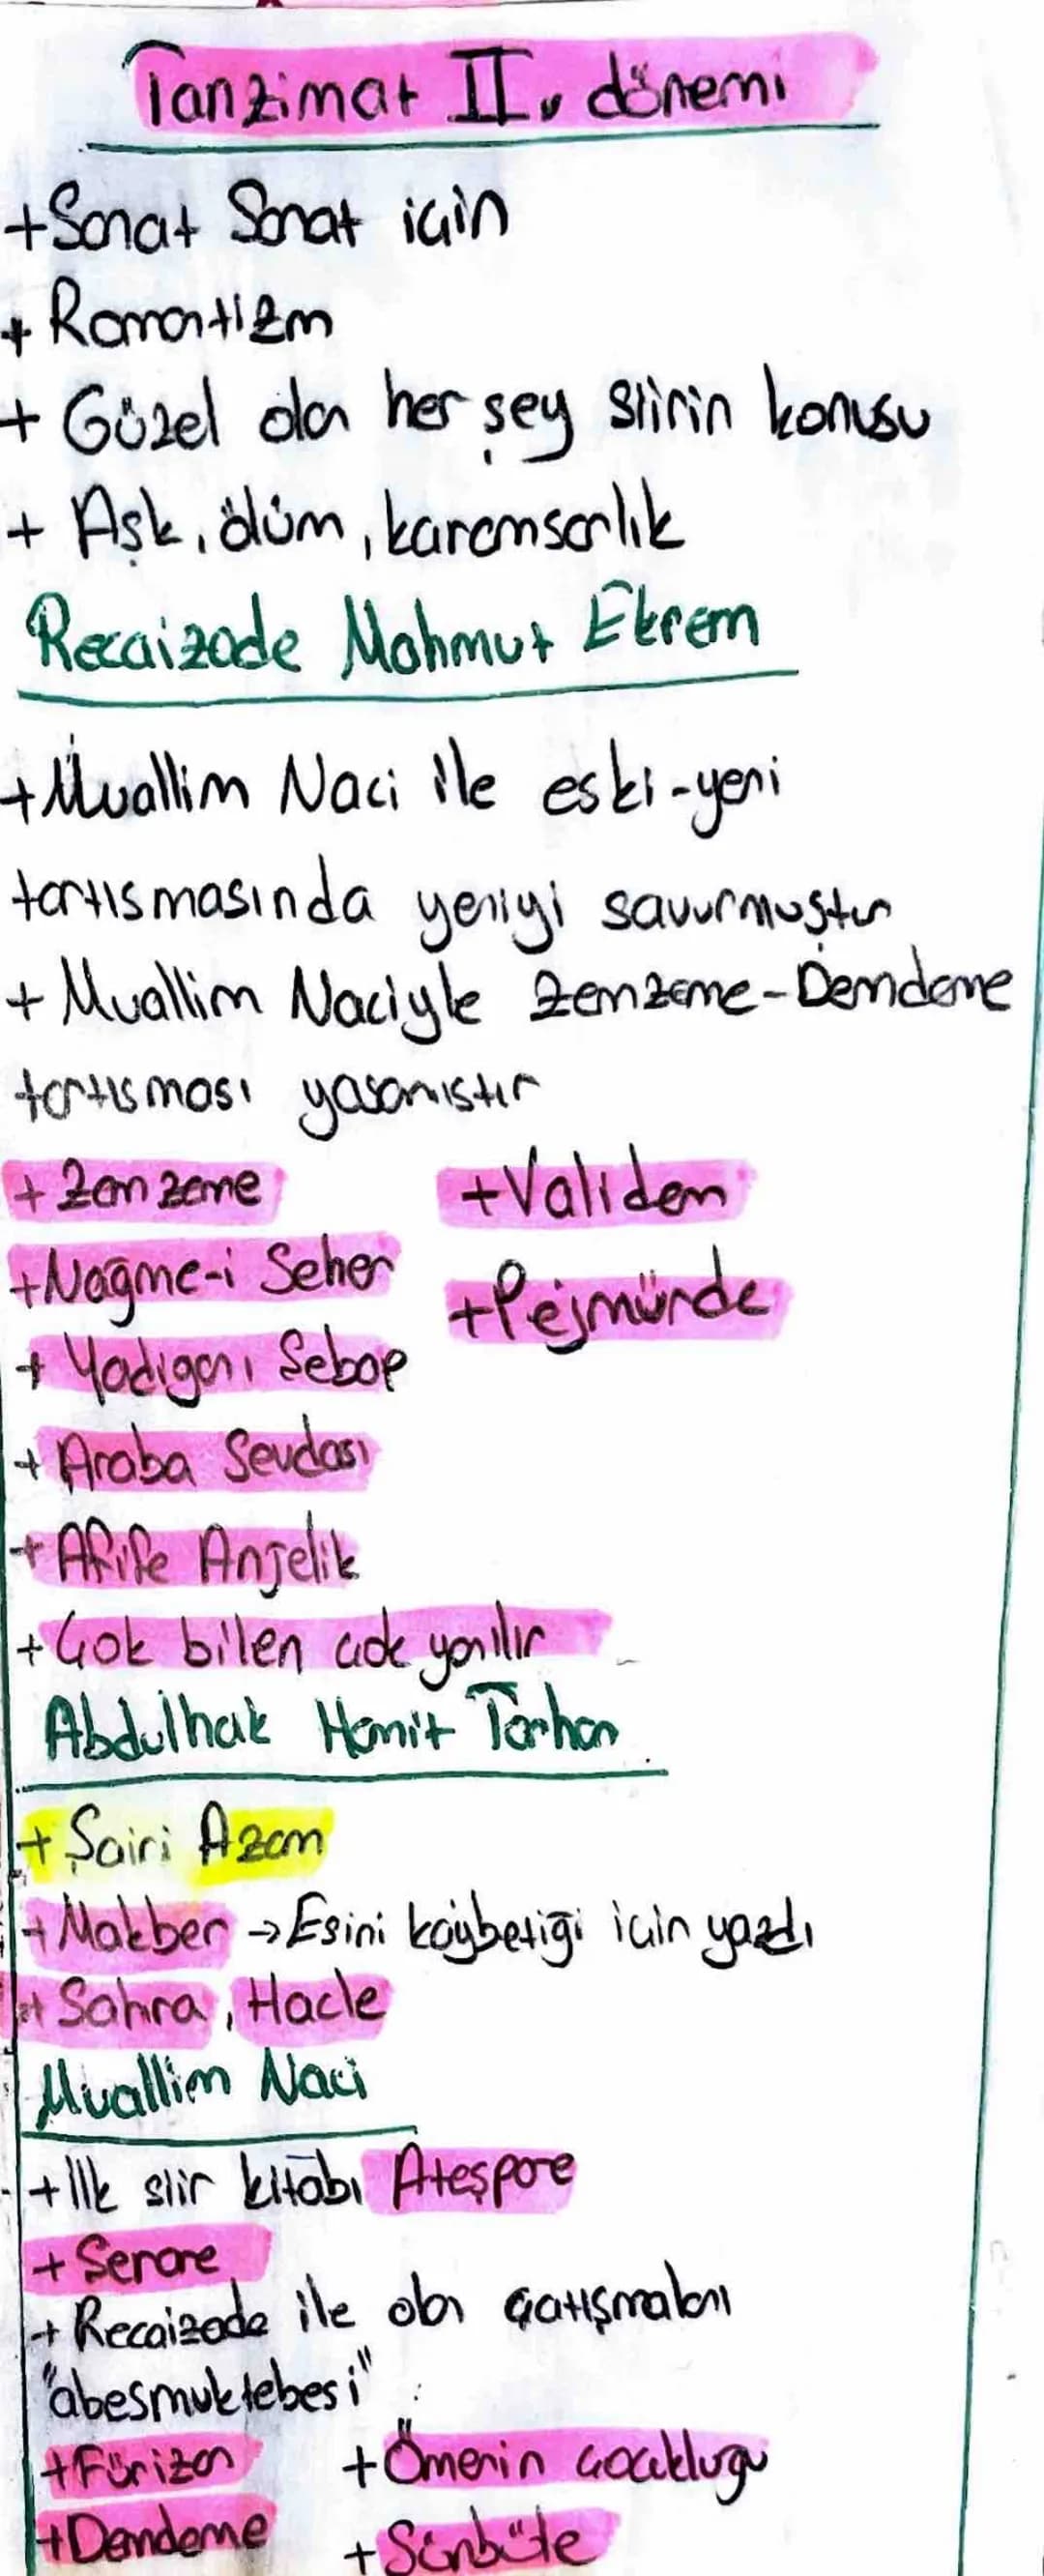 Tanzimat II. dönemi
+Sanat Sanat için
+ Romantizm
+ Güzel olan her şey şiirin konusu
+ Aşk, ölüm, karamsarlık
Recaizade Mahmut Ekrem
+Muallim Naci ile eski-yeni
tartısmasında yeniyi savunmuştur
+ Muallim Naciyle Zemzeme-Demdeme
tartısması yasamıstır
+ Zemzeme
+Validem
+Nağme-i Seher
+Pejmürde
+ Yadigarı Sebap
+ Araba Sevdası
+ Afife Anjelik
+ Çok bilen çok yanılır
Abdulhak Hamit Tarhan
+ Şairi Azam
+ Makber →Esini kaybetiği için yazdı
+ Sahra, Hacle
Muallim Naci
+İlk siir kitabı Ateşpare
+ Serare
+ Recaizade ile olan çatışmaları
"abesmuktebesi"
+Fürizan
+Ömerin çocuklugu
+Demdeme
+ Sünbüle